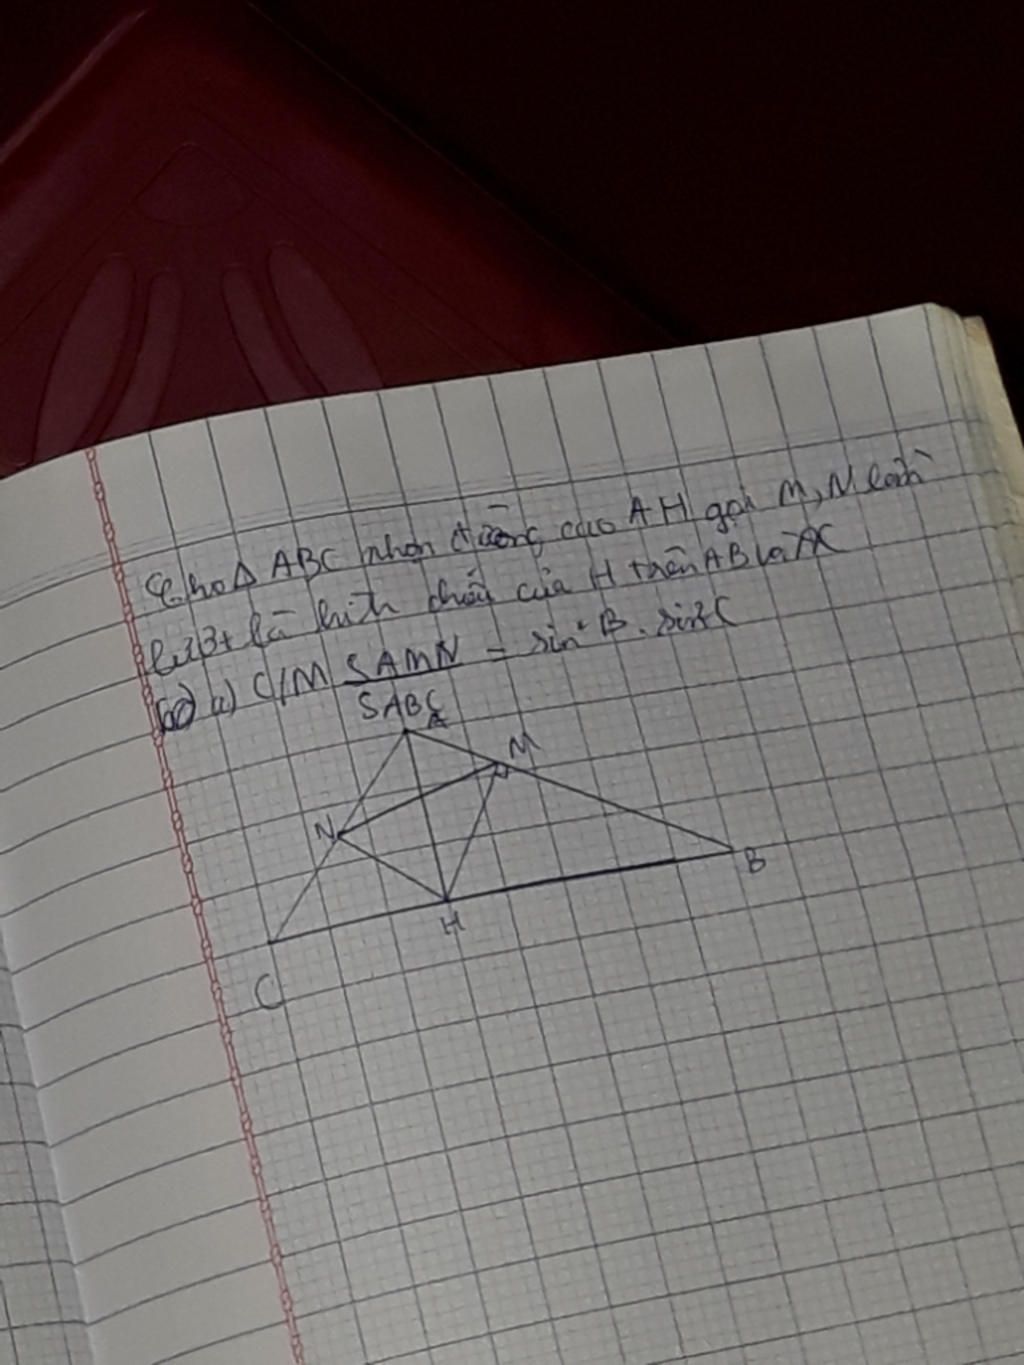 Cho Δ ABC nhọn đường cao AH gọi M, N lần
lượt là hình chiếu của H trên AB và AC
a) C/M SAMN = sin² B . sin² C
SABC
A
M
N
B
H
C